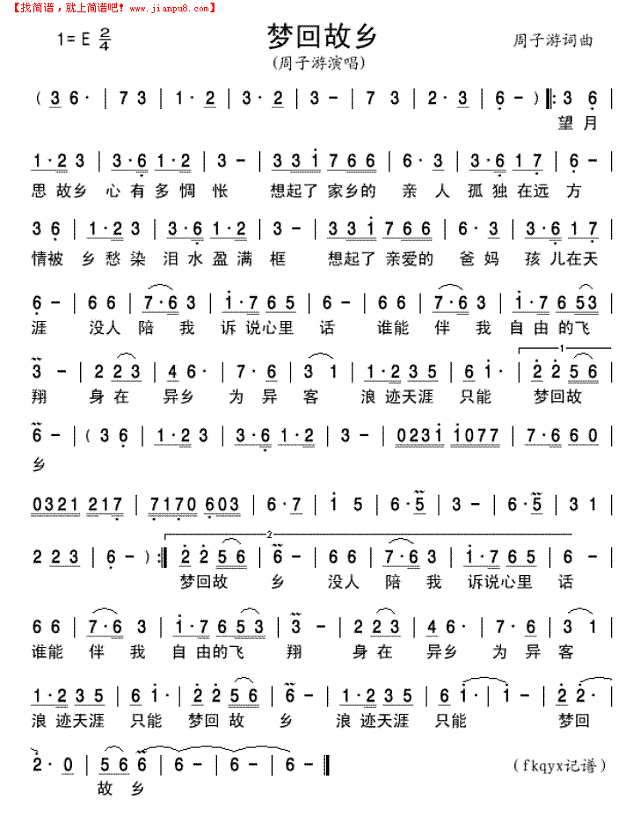 【找简谱，就上简谱吧！www.jianpu8.com】
梦回故乡
1=E 2/4
周子游词曲
(周子游演唱)
( 3 6· | 7 3 | 1·2 | 3·2 | 3·1 | 5·7 | 7 3 | 2·3 | 6·2 | 6 - ) ‖: 3 6 |
望月
1·2 3 | 3·6 1·2 | 3 - | 3 3 1 7 6 6 | 6·3 | 3·6 1 7 | 6 - |
思故乡 心有多惆怅 想起了家乡的 亲人 孤独在远方
3 6 | 1·2 3 | 3·6 1·2 | 3 - | 3 3 1 7 6 6 | 6·3 | 3·6 1 7 |
情被 乡愁染 泪水盈满框 想起了亲爱的 爸妈 孩儿在天
6 - | 6 6 | 7·6 3 | 1·7 6 5 | 6 6 | 7·6 3 | 1·7 6 53 |
涯 没人 陪我 诉说心里话 谁能 伴我 自由的飞
3 - | 2 2 3 | 4 6· | 7·6 | 3 1 | 1·2 3 5 | 6 1· | 2 2 5 6 |
翔 身在 异乡 为异客 浪迹天涯 只能 梦回故
6 - | ( 3 6 | 1·2 3 | 3·6 1·2 | 3 - | 0231 1077 | 7·6 6 0 |
乡
0321 217 | 7170 603 | 6·7 | 1 5 | 6·5 | 3 - | 6·5 | 3 1 |
2 2 3 | 6 - ) :‖ 2 2 5 6 | 6 - | 6 6 | 7·6 3 | 1·7 6 5 | 6
梦回故 乡 没人 陪我 诉说心里话
6 6 | 7·6 3 | 1·7 6 5 6 | 3 - | 2 2 3 | 4 6· | 7·6 | 3 1 |
谁能 伴我 自由的飞 翔 身在 异乡 为异客
1·2 3 5 | 6 1· | 2 2 5 6 | 6 - | 1·2 3 5 | 6 1· | 1 - | 2 2 |
浪迹天涯 只能 梦回故 乡 浪迹天涯 只能 梦回
2·0 | 5 6 | 6 - | 6 - | 6 - ‖
故乡
(fkqyx记谱)